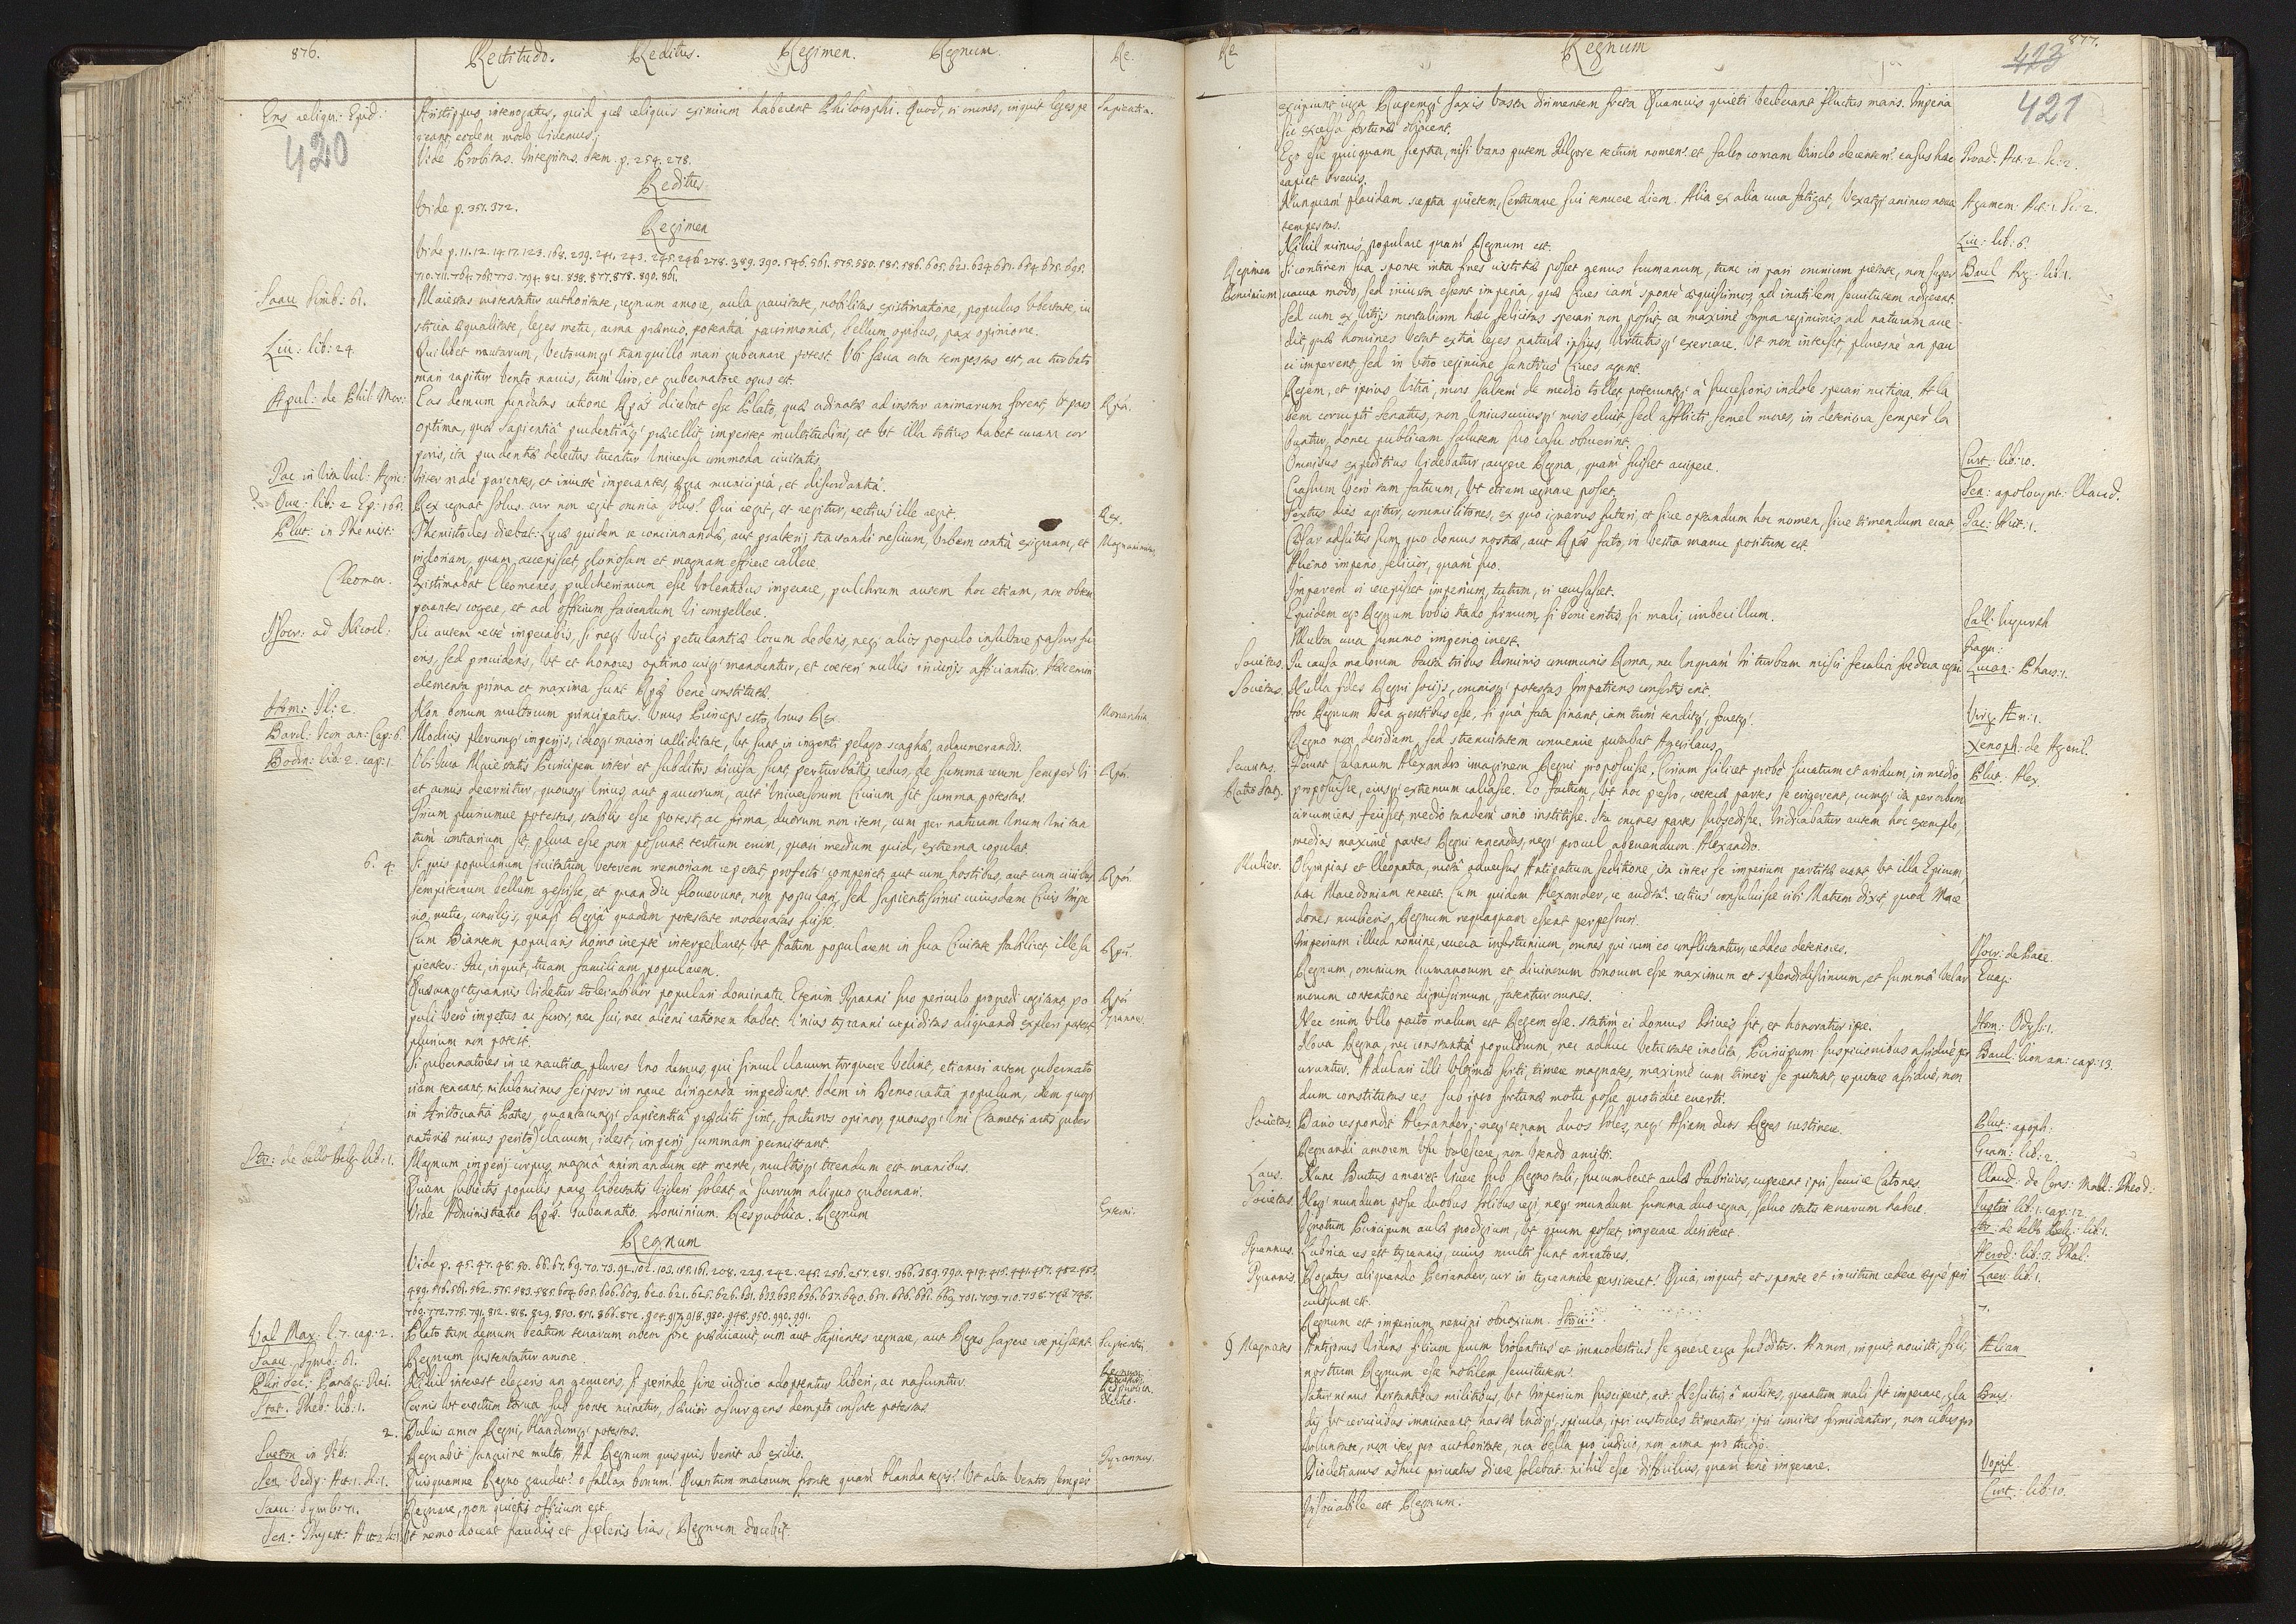 876. Rectitudo. Reditus. Regimen. Regnum. Re.
Aristippus interrogatus, quid præ reliquis eximium haberent Philosophi. Quod, si omnes, inquit leges pe Sapientia.
420
reant, eodem modo videmus.
Vide Probitas. Integritas. Item. p. 254. 278.
Reditus
Vide p. 351. 372.
Regimen
Saau Simb: 61. Maiestas sustentatur authoritate, regnum amore, aula gravitate, nobilitas existimatione, populus libertate, iu
stitia æqualitate, leges metu, arma præmio, potentia patrimonio, bellum opibus, pax opinione.
Liu: lib: 24. Quilibet nautarum, Vectorumq; tranquillo mari gubernare potest. Ubi sæva orta tempestas est, ac turbato
mari rapitur vento navis, tum viro, et gubernatore opus est.
Apul: de Phil Mor: Eas demum fundatas ratione Rpas dicebat esse Plato, quæ ordinatæ ad instar animarum forent, Ut pars Rpa.
optima, quæ Sapientia prudentiaq; præcellit imperitet multitudini, et Ut illa totius habet curam cor
poris, ita prudentiæ delectus tueatur Universa commoda civitatis.
Tac in Vita Iul: Agric: Inter male parentes, et iniuste imperantes, ægra municipia, et discordantia.
Owe: lib: 2 Ep: 165. Rex regnat solus. cur non regit omnia solus? Qui regit, et regitur, rectius ille regit. Rex.
Plut: in Themist: Themistocles dicebat: Lyræ quidem se concinnandæ, aut psalterij tractandi nescium, Urbem contra exiguam, et
ingloriam, quam accepisset, gloriosam et magnam efficere callere.
Cleomen. Existimabat Cleomenes, pulcherrimum esse Volentibus imperare, pulchrum autem hoc etiam, non obtem
perantes cogere, et ad officium faciendum Vi compellere.
Isocr: ad Nicocl: Sic autem recte imperabis, si neq; vulgi petulantiæ locum dederis, neq; alios populo insultare passus fu
eris, sed providens, Ut et honores optimo cuiq; mandentur, et cæteri nullis iniurijs afficiantur. Hæc enim
elementa prima et maxima sunt Rpæ bene constitutæ.
Hom: Il: 2. Non bonum multorum principatus. Unus Princeps esto, Unus Rex. Monarchia
Barcl: Icon an: Cap: 6. Modicis plerumq; ingenijs, ideoq; maiori calliditate, Ut sunt in ingenti pelago scaphæ, adnumerandis.
Bodin: lib: 2. cap: 1. Ubi Iura Maiestatis Principem inter et subditos divisa sunt, perturbatis rebus, de summa rerum semper Vi Rpa.
et armis decernitur, quousq; Unius, aut paucorum, aut Universorum Civium sit summa potestas.
Trium pluriumve potestas, stabilis esse potest, ac firma, duorum non item, cum per naturam Unum Uni tan
tum contrarium sit, plura esse non possunt: tertium enim, quasi medium quid, extrema copulat.
6. 4 Si quis popularium Civitatum veterem memoriam repetat, profecto comperiet, aut cum hostibus, aut cum civibus Rpa.
sempiternum bellum gessisse, et quam diu floruerunt, non populari, sed sapientissimi cuiusdam Civis Impe
rio, nutu, consilijs, quasi Regia quadam potestate moderatas fuisse.
Cum Biantem popularis homo inepte interpellaret, Ut statum popularem in sua Civitate stabiliret, ille sa Rpa.
pienter: Fac, inquit, tuam familiam popularem.
Quæcunq; tyrannis Videtur tolerabilior populari dominatu. Etenim Tyranni suo periculo propedi cogitant, po Rpa
puli Vero impetus ac furor, nec sui, nec alieni rationem habet. Unius tyranni cupiditas aliquando expleri potest, Tyrannus.
plurium non potest.
Si gubernatores in re nautica plures Uno demus, qui simul clavum torquere Velint, etiamsi artem gubernato
riam teneant, nihilominus seipsos in nave dirigenda impediunt. Idem in Democratia populum, idem quoq;
in Aristocratia Patres, quantacunq; Sapientia præditi sint, facturos opinor, quousq; Uni (tametsi artis guber
natoriæ minus perito) clavum, id est, imperij summam permittant.
Str: de bello Belg: lib: 1. Magnum imperij corpus, magna animandum est mente, multisq; tuendum est manibus.
Quum subiectis populis pars libertatis Videri solent, a suorum aliquo gubernari.
Vide Administratio Rpæ. Gubernatio. Dominium. Respublica. Regnum Externi.
Regnum
Val Max: l: 7. cap: 2. Plato tum demum beatum terrarum orbem fore prædicavit, cum aut Sapientes regnare, aut Reges sapere cœpissent. Sapientia.
Saau Symb: 61. Regnum sustentatur amore.
Nihil interest elegeris an genueris, si perinde sine iudicio adoptentur liberi, ac nascuntur.
Stat. Theb: lib: 1. Cernis Ut erectum torva sub fronte minetur, Sævior assurgens dempto consorte potestas.
2. Dulcis amor Regni, blandumq; potestas.
Sueton in Tib: Regnabit sanguine multo, Ad Regnum quisquis Venit ab exilio. Tyrannus.
Sen: Oedip: Act: 1. Sc: 1. Quisquamne Regno gaudet? o fallax bonum! Quantum malorum fronte quam blanda tegis! Ut alta Ventos semper
Saau: Symb: 71. Regnare, non quietis officium est.
Sen: Thyest: Act: 2 Ut nemo doceat fraudis et sceleris Vias, Regnum docebit.
Re Regnum 877.
423
421
excipiunt iuga Rupemq; saxis Vasta dirimentem freta Quamvis quieti Verberant fluctus maris. Imperia
sic excelsa fortunæ obiacent.
Ego esse quicquam sceptra, nisi Vano putem fulgore tectum nomen et falso comam Vinclo decentem? casus hæc Troad. Act: 2. Sc: 2.
rapiet brevis.
Nunquam placidam sceptra quietem, Certumve sui tenuere diem. Alia ex alia cura fatigat, Vexatq; animos nova Agamem: Act: 1. Sc: 2.
tempestas.
Nihil minus populare quam Regnum est. Liu: lib: 6.
Regimen Si contineri sua sponte intra fines iustitiæ posset genus humanum, tunc in pari omnium pietate, non super Barcl Arg: lib: 1.
Dominium vacua modo, sed iniusta essent imperia, quæ Cives iam sponte æquissimos ad inutilem servitutem adigerent.
Sed cum ex Vitijs mortalium hæc felicitas sperari non possit, ea maxime forma regiminis ad naturam acce
dit quæ homines Vetat extra leges naturæ ipsius, Virtutisq; exerrare. Ut non intersit, pluresne an pau
ci imperent, sed in Utro regimine sanctius Cives agant.
Regem, et ipsius Vitia, mors saltem de medio tollet, poteruntq; a successoris indole sperari meliora. At la
bem corrupti Senatus, non Uniuscuiusq; mors eluit, sed afflicti semel mores, in deteriora semper la
buntur, donec publicam salutem suo casu obruerint.
Omnibus expeditius Videbatur, augere Regna, quam fuisset accipere. Curt: lib: 10.
Crassum Vero tam fatuum, Ut etiam regnare posset. Sen: apolocynt: Claud.
Sextus dies agitur, commilitones, ex quo ignarus futuri, et sive optandum hoc nomen, sive timendum erat Tac: Hist: 1.
Cæsar adscitus sum, quo domus nostræ, aut Rpæ fato, in vestra manu positum est.
Alieno imperio felicior, quam suo.
Imparem si recepisset imperium, tutum, si recusasset.
Equidem ego Regnum Vobis trado firmum, si boni eritis, si mali, imbecillum. Sall: Iugurth
Multa cura summo imperio inest. Fragm:
Societas. Tu causa malorum Facta tribus Dominis communis Roma, nec Unquam In turbam missi feralia fœdera regni. Lucan: Phars: 1.
Societas. Nulla fides Regni socijs, omnisq; potestas Impatiens consortis erit.
Hoc Regnum Dea gentibus esse, si qua fata sinant, iam tum tenditq; fovetq;. Virg: Æn: 1.
Regno non desidiam, sed strenuitatem convenire putabat Agesilaus. Xenoph: de Agesil.
Ferunt Calanum Alexandro imaginem Regni proposuisse, Corium scilicet probe siccatum et aridum, in medio Plut: Alex.
Ratio Stat9. proposuisse, eiusq; extremum calcasse. Eo factum, Ut hoc presso, ceteræ partes se erigerent, cumq; ita per orbem
circumiens fecisset, medio tandem corio institisse. Ita omnes partes subsedisse. Indicabatur autem hoc exemplo,
medias maxime partes Regni tenendas, neq; procul aberrandum Alexandro.
Mulier. Olympias et Cleopatra, mota adversus Antipatrum seditione, ita inter se imperium partitæ erant Ut illa Epirum,
hæc Macedoniam teneret. Cum quidem Alexander, re audita: rectius consuluisse sibi Matrem dixit, quod Mace
dones mulieris Regnum nequaquam essent perpessuri.
Imperium illud nomine, revera infortunium, omnes qui cum eo conflictantur, reddere deteriores. Isocr: de Pace
Regnum, omnium humanorum et divinorum bonorum esse maximum et splendidissimum, et summa Vel ar Euag:
morum contentione dignissimum, fatentur omnes.
Nec enim Ullo pacto malum est Regem esse. Statim ei domus Dives fit, et honoratior ipse. Hom: Odyss: 1.
Nova Regna, nec constantia populorum, nec adhuc Vetustate inolita, Principum suspicionibus assidue pe Barcl: Icon an: cap: 13.
urantur. Adulari illi Ultimæ sorti, timere magnates, maxime cum timeri se putant, reputare assidue, non
dum constitutas res sub ipso fortunæ motu posse quotidie everti.
Societas Dario respondit Alexander: neq; terram duos Soles, neq; Asiam duos Reges sustinere. Plut: apoph:
Regnandi amorem Usu Valescere, non Utendo amitti. Gram: lib: 2.
Laus. Nunc Brutus amaret Vivere sub Regno tali, succumberet aulæ Fabricius, cuperent ipsi servire Catones. Claud: de Cons: Mall: Theod:
Societas. Neq; mundum posse duobus Solibus regi, neq; mundum summa duo regna, salvo statu terrarum habere. Iustin lib: 1. cap: 12.
Ignotum Principum aulis prodigium, Ut quum posset, imperare desineret. Str: de bello Belg: lib: 1.
Tyrannus. Lubrica res est tyrannis, cuius multi sunt amatores. Herod: lib: 3. Thal:
Tyrannis. Rogatus aliquando Periander, cur in tyrannide persisteret? Quia, inquit, et sponte et invitum cedere æque peri Laer: lib: 1.
culosum est.
Regnum est imperium nemini obnoxium. Stoici 7.
§ Magnates Antigonus Videns filium suum Violentius et immodestius se gerere erga subditos. An non, inquit, novisti, fili, Ælian
nostrum Regnum esse nobilem servitutem?
Saturninus hortantibus militibus, Ut Imperium susciperet, ait: Nescitis, o milites, quantum mali sit imperare, gla
dij Ut cervicibus immineant, hastæ Undiq; spicula, ipsi custodes timentur, ipsi comites formidantur, non cibus pro
Voluntate, non iter pro authoritate, non bella pro iudicio, non arma pro studio.
Diocletianus adhuc privatus dicere solebat: nihil esse difficilius, quam bene imperare. Vopisc.
Insociabile est Regnum. Curt: lib: 10.